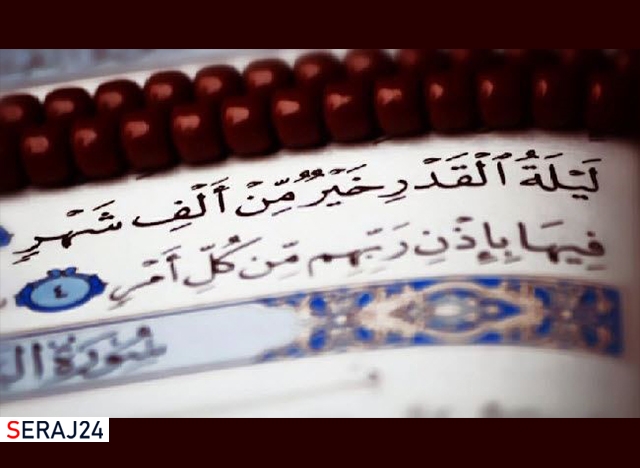 لَيْلَةُ الْقَدْرِ خَيْرٌ مِّنْ أَلْفِ شَهْرٍ
فِيهَا بِإِذْنِ رَبِّهِم مِّن كُلِّ أَمْرٍ ٤
سُورَةُ
SERAJ24